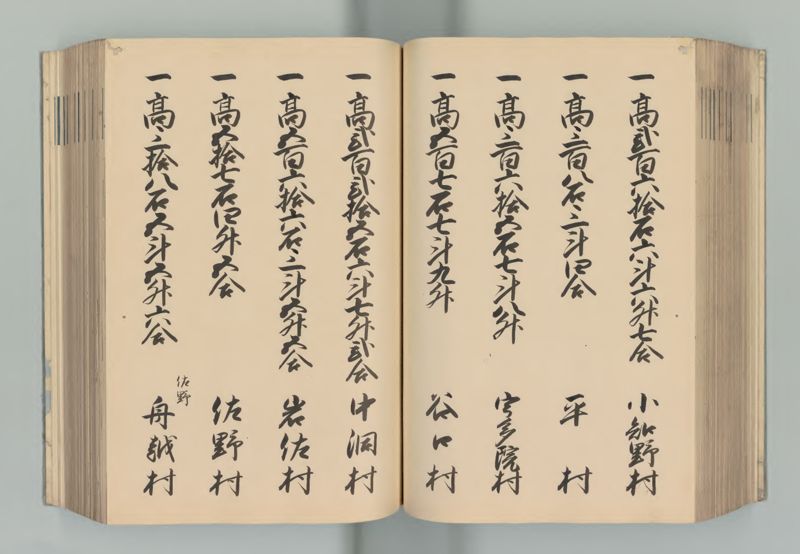 一高弐百六拾石六斗六升七合 小知野村
一高三百八石三斗四合 平村
一高三百六拾五石七斗八升 宇多院村
一高五百七石七斗九升 谷口村
一高弐百弐拾五石六斗七升弐合 中洞村
一高五百六拾六石三斗五升五合 岩佐村
一高五拾七石四升五合 佐野村
一高三拾八石五斗五升六合 佐野 舟越村